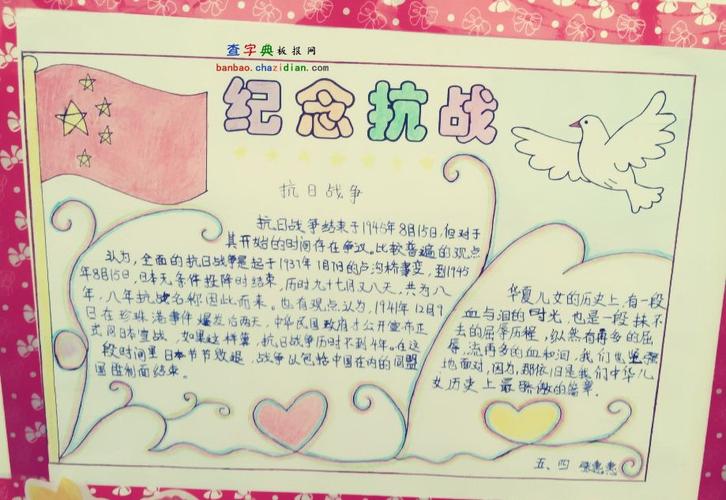 查字典板报网
banbao.chazidian.com
纪念抗战
抗日战争
抗日战争结束于1945年8月15日,但对于
其开始的时间存在争议。比较普遍的观点
认为,全面的抗日战争是起于1937年7月7日的卢沟桥事变,到1945
年8月15日,日本无条件投降时结束,历时九十九月又八天,共为八
年,八年抗战名称因此而来。也有观点认为,1941年12月9
日在珍珠港事件爆发后两天,中华民国政府才公开宣布正
式向日本宣战,如果这样算,抗日战争历时不到4年。在这
段时间里日本节节败退,战争以包括中国在内的同盟
国胜利而结束。
华夏儿女的历史上,有一段
血与泪的时光,也是一段抹不
去的屈辱历程,纵然有再多的屈
辱,流再多的血和泪,我们也坚强
地面对,因为,那依旧是我们中华儿
女历史上最骄傲的篇章。
五、四